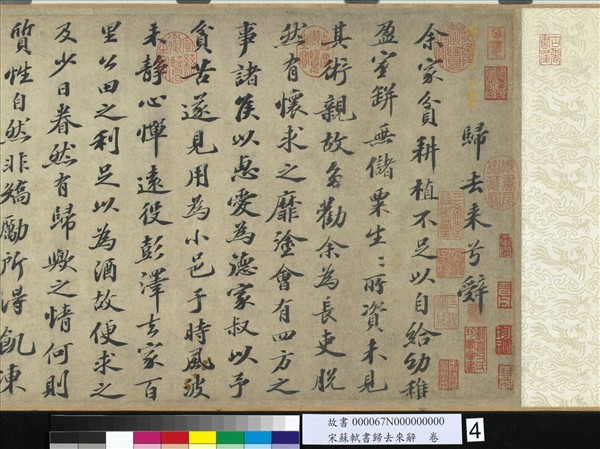 歸去来兮辭
余家貧耕植不足以自給幼稚
盈室缾無儲粟生〻所資未見
其術親故多勸余為長吏脫
然有懷求之靡塗會有四方之
事諸侯以惠愛為德家叔以予
貧苦遂見用為小邑于時風波
未静心憚遠役彭澤去家百
里公田之利足以為酒故便求之
及少日眷然有歸歟之情何則
質性自然非矯勵所得飢凍
故書 000067N000000000
宋蘇軾書歸去來辭 卷
4